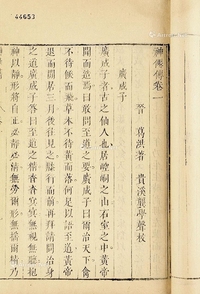 44653
神仙傳卷一
晉 葛洪著 貴溪龔學聲校
廣成子
廣成子者古之仙人也居崆峒之山石室之中黃帝
聞而造焉曰敢問至道之要廣成子曰爾治天下禽
不待候而飛草木不待黃而落何足以語至道黃帝
退而閒居三月後往見之膝行而前再拜請問治身
之道廣成子答曰至道之精杳杳冥冥無視無聽抱
神以靜形將自正必靜必清無勞爾形無搖爾精乃